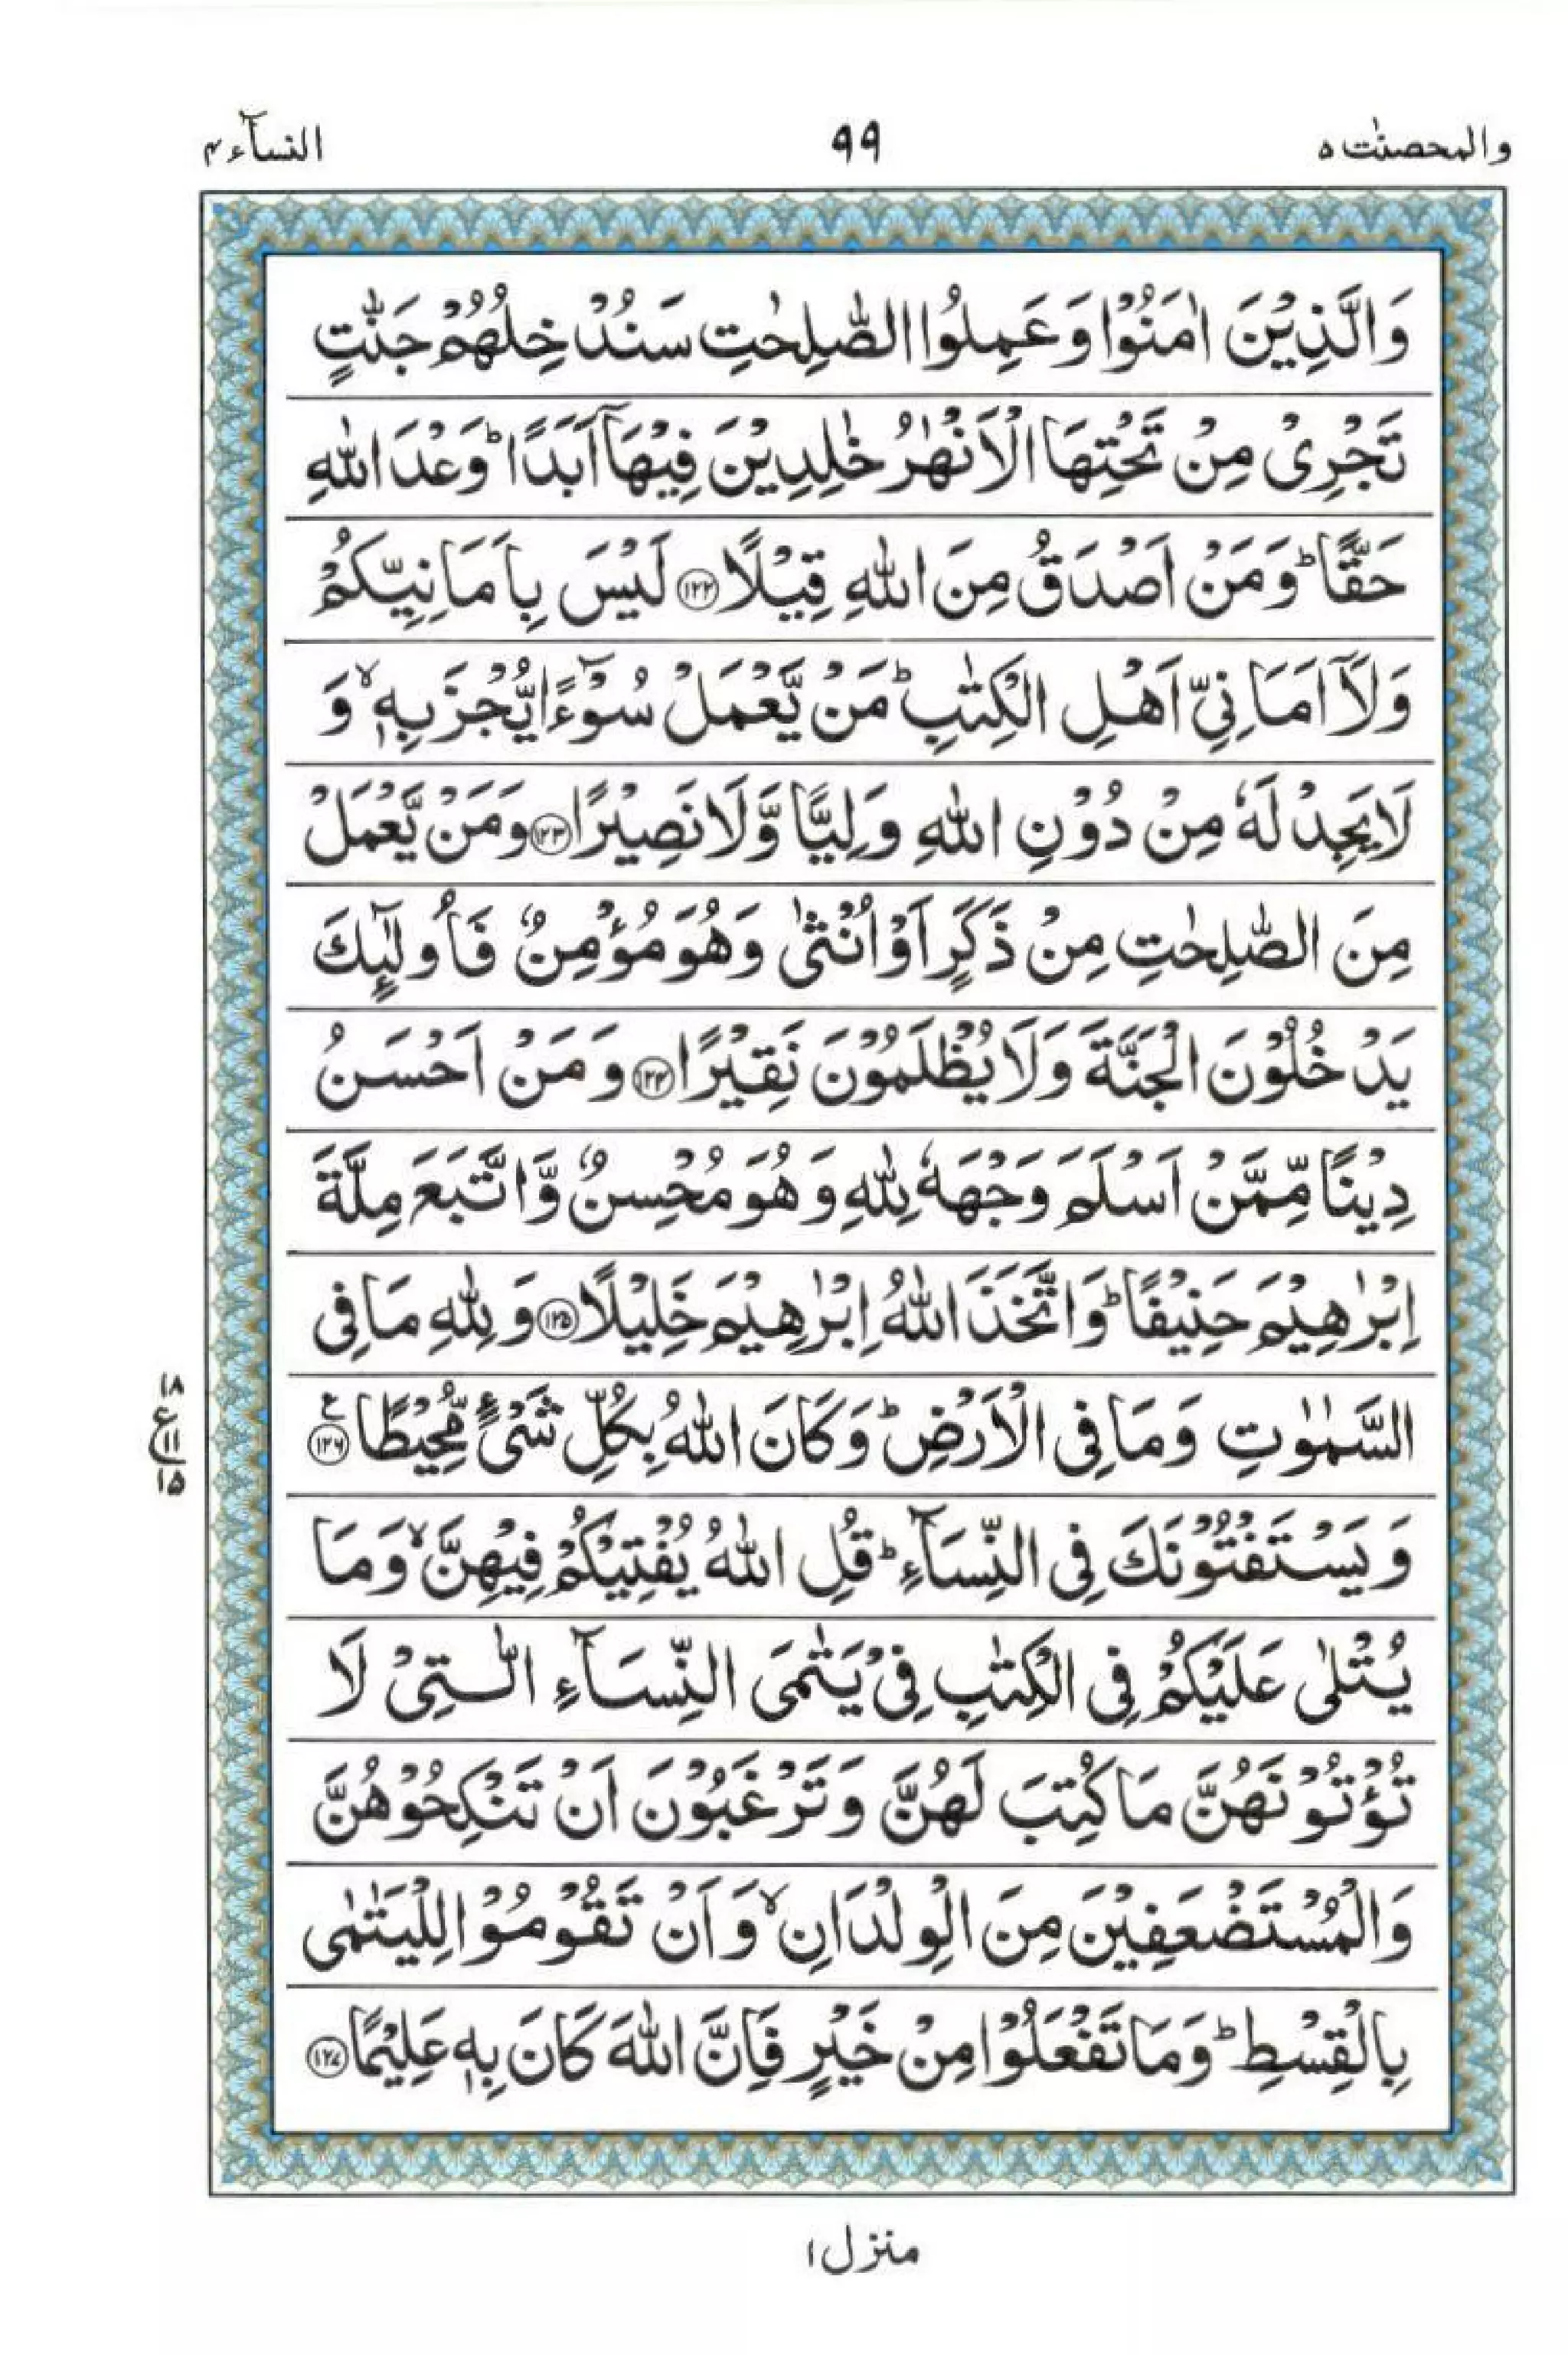 والمحصنٰت ۵
۹۹
النسآء ۴
وَالَّذِيْنَ اٰمَنُوْا وَعَمِلُوا الصّٰلِحٰتِ سَنُدْخِلُهُمْ جَنّٰتٍ
تَجْرِىْ مِنْ تَحْتِهَا الْاَنْهٰرُ خٰلِدِيْنَ فِيْهَآ اَبَدًا ؕ وَعْدَ اللّٰهِ
حَقًّا ؕ وَمَنْ اَصْدَقُ مِنَ اللّٰهِ قِيْلًا ۝۱۲۲ لَيْسَ بِاَمَانِيِّكُمْ
وَلَآ اَمَانِىِّ اَهْلِ الْكِتٰبِ ؕ مَنْ يَّعْمَلْ سُوْٓءًا يُّجْزَ بِهٖ ۙ وَ
لَا يَجِدْ لَهٗ مِنْ دُوْنِ اللّٰهِ وَلِيًّا وَّلَا نَصِيْرًا ۝۱۲۳ وَمَنْ يَّعْمَلْ
مِنَ الصّٰلِحٰتِ مِنْ ذَكَرٍ اَوْ اُنْثٰى وَهُوَ مُؤْمِنٌ فَاُولٰٓئِكَ
يَدْخُلُوْنَ الْجَنَّةَ وَلَا يُظْلَمُوْنَ نَقِيْرًا ۝۱۲۴ وَمَنْ اَحْسَنُ
دِيْنًا مِّمَّنْ اَسْلَمَ وَجْهَهٗ لِلّٰهِ وَهُوَ مُحْسِنٌ وَّاتَّبَعَ مِلَّةَ
اِبْرٰهِيْمَ حَنِيْفًا ؕ وَاتَّخَذَ اللّٰهُ اِبْرٰهِيْمَ خَلِيْلًا ۝۱۲۵ وَلِلّٰهِ مَا فِى
السَّمٰوٰتِ وَمَا فِى الْاَرْضِ ؕ وَكَانَ اللّٰهُ بِكُلِّ شَىْءٍ مُّحِيْطًا ۝۱۲۶ ع
۱۸
ع
۱۱
۱۵
وَيَسْتَفْتُوْنَكَ فِى النِّسَآءِ ؕ قُلِ اللّٰهُ يُفْتِيْكُمْ فِيْهِنَّ ۙ وَمَا
يُتْلٰى عَلَيْكُمْ فِى الْكِتٰبِ فِىْ يَتٰمَى النِّسَآءِ الّٰتِىْ لَا
تُؤْتُوْنَهُنَّ مَا كُتِبَ لَهُنَّ وَتَرْغَبُوْنَ اَنْ تَنْكِحُوْهُنَّ
وَالْمُسْتَضْعَفِيْنَ مِنَ الْوِلْدَانِ ۙ وَاَنْ تَقُوْمُوْا لِلْيَتٰمٰى
بِالْقِسْطِ ؕ وَمَا تَفْعَلُوْا مِنْ خَيْرٍ فَاِنَّ اللّٰهَ كَانَ بِهٖ عَلِيْمًا ۝۱۲۷
منزل ۱